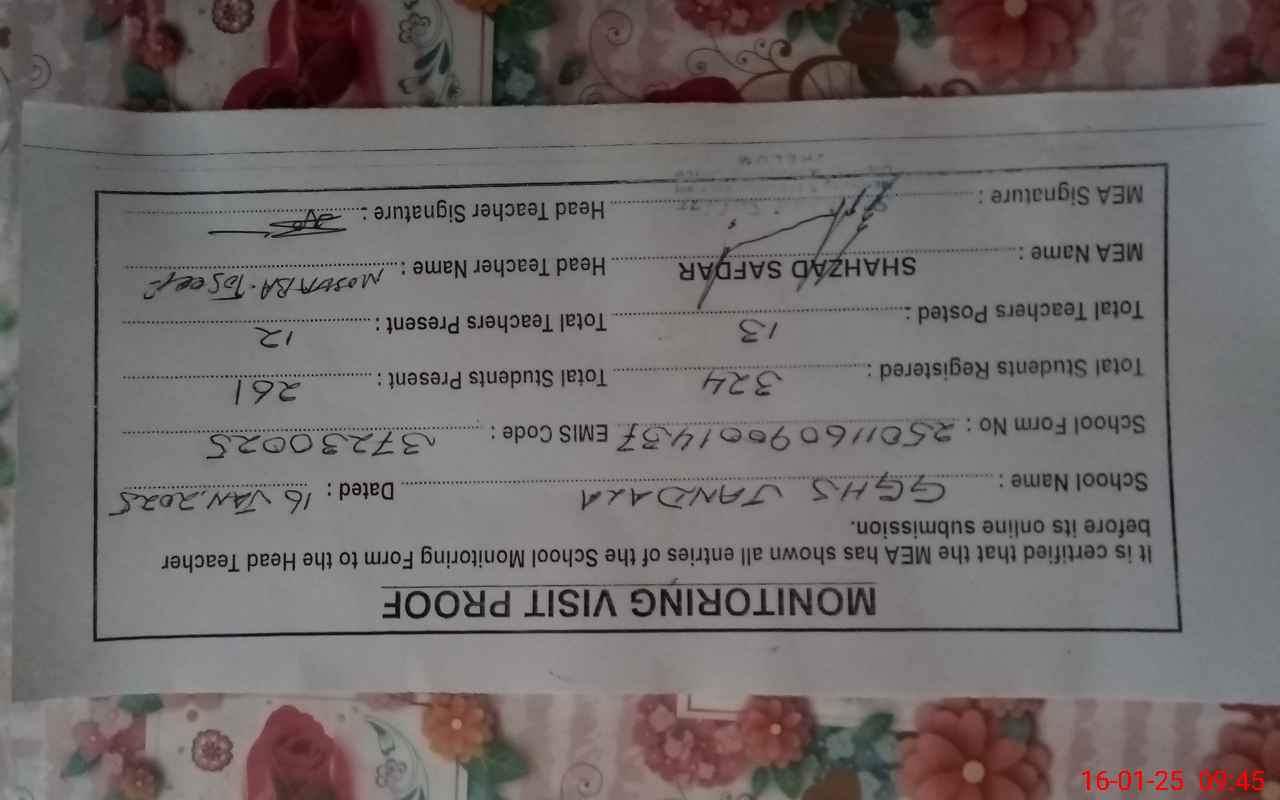 MONITORING VISIT PROOF
It is certified that the MEA has shown all entries of the School Monitoring Form to the Head Teacher
before its online submission.
School Name : GGHS JANDALA Dated : 16 JAN.2025
School Form No : 25011609001437 EMIS Code : 37230025
Total Students Registered : 324 Total Students Present : 261
Total Teachers Posted : 13 Total Teachers Present : 12
MEA Name : SHAHZAD SAFDAR Head Teacher Name :
MEA Signature : Head Teacher Signature :
16-01-25 09:45